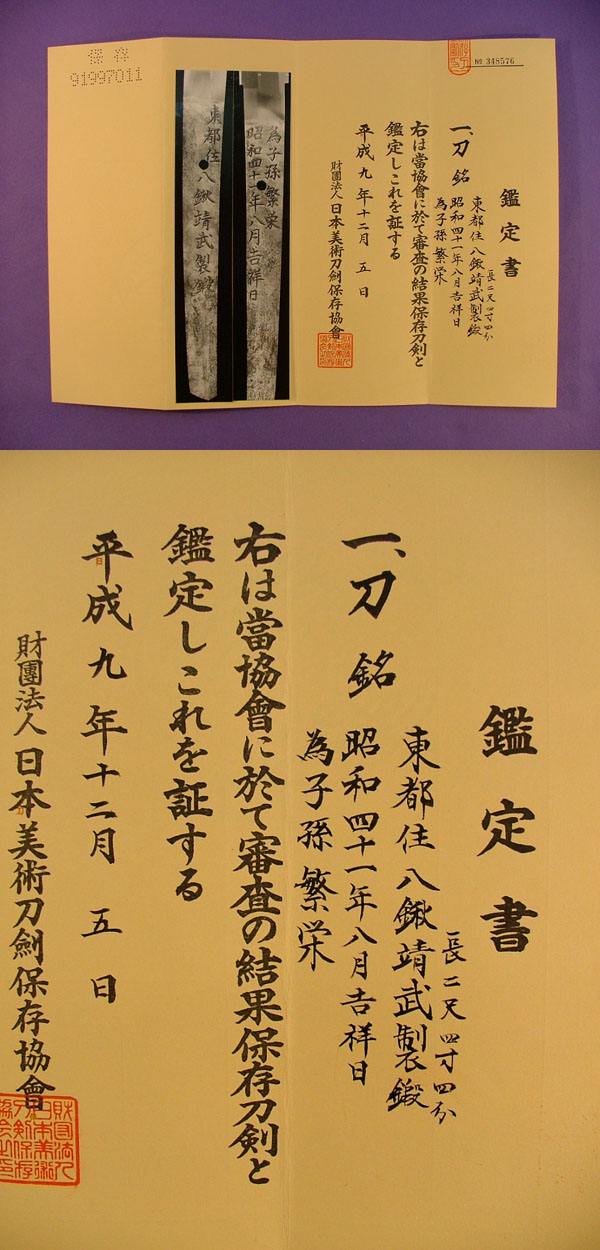 保存
91997011
東都住八鍬靖武製鍛
為子孫繁栄
昭和四十一年八月吉祥日
№ 348576
鑑定書
一、刀 銘
東都住八鍬靖武製鍛
長二尺四寸四分
昭和四十一年八月吉祥日
為子孫繁栄
右は當協會に於て審査の結果保存刀剣と
鑑定しこれを証する
平成九年十二月五日
財團法人日本美術刀劍保存協會
鑑定書
一、刀 銘
長二尺四寸四分
東都住八鍬靖武製鍛
昭和四十一年八月吉祥日
為子孫繁栄
右は當協會に於て審査の結果保存刀剣と
鑑定しこれを証する
平成九年十二月五日
財團法人日本美術刀劍保存協會